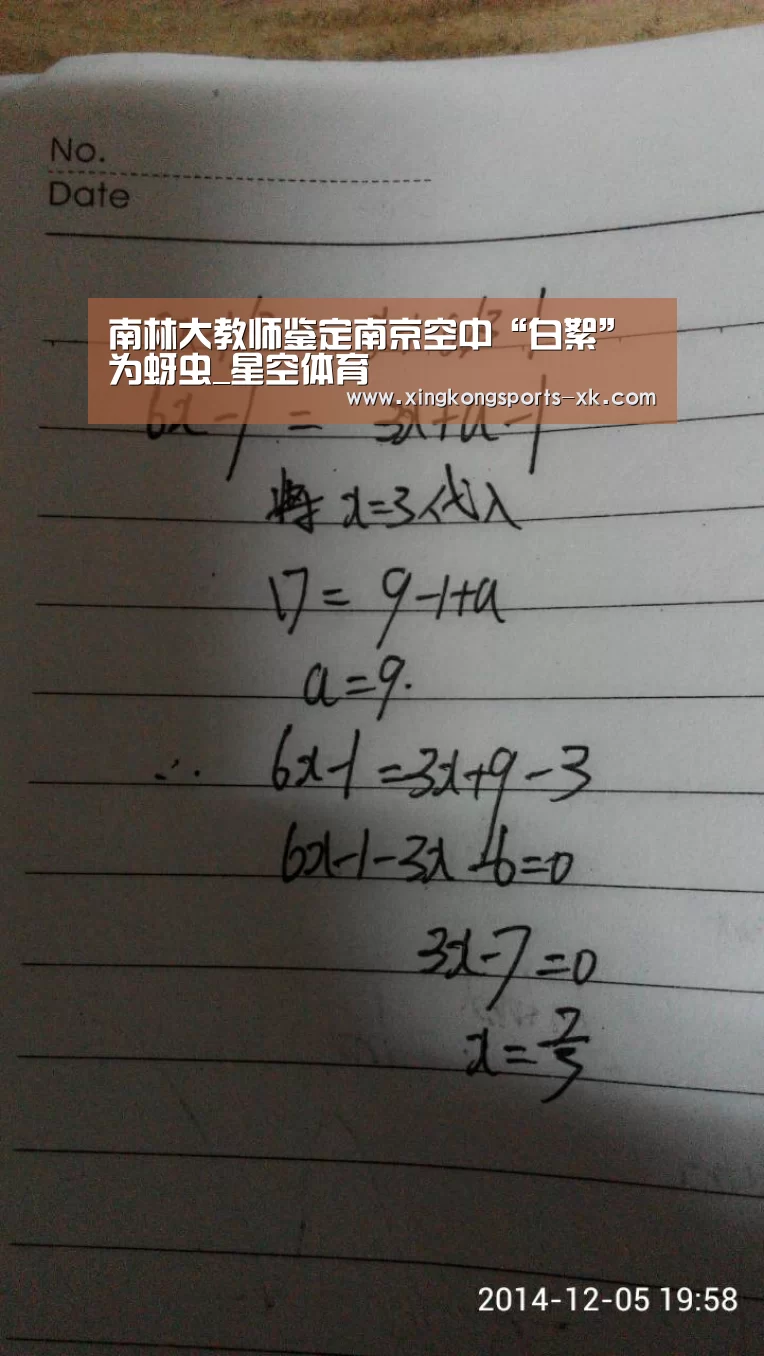 No.
Date
南林大教师鉴定南京空中“白絮”
为蚜虫_星空体育
www.xingkongsports-xk.com
6x-1 = 3x+a-1
将 x=3代入
17= 9-1+a
a=9.
∴ 6x-1=3x+9-3
6x-1-3x-6=0
3x-7=0
x=7/3
2014-12-05 19:58